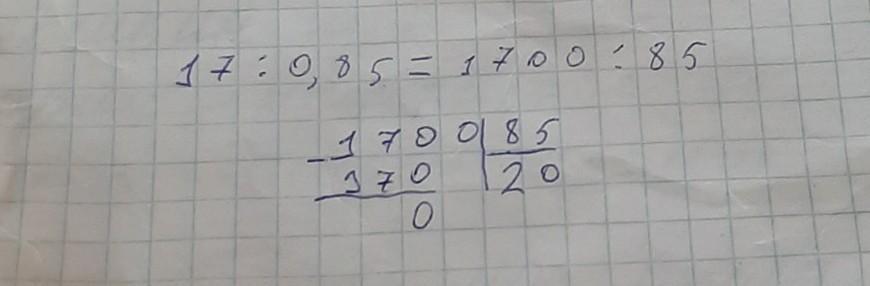 17 : 0,85 = 1700 : 85
- 1700 | 85
170 | 20
0